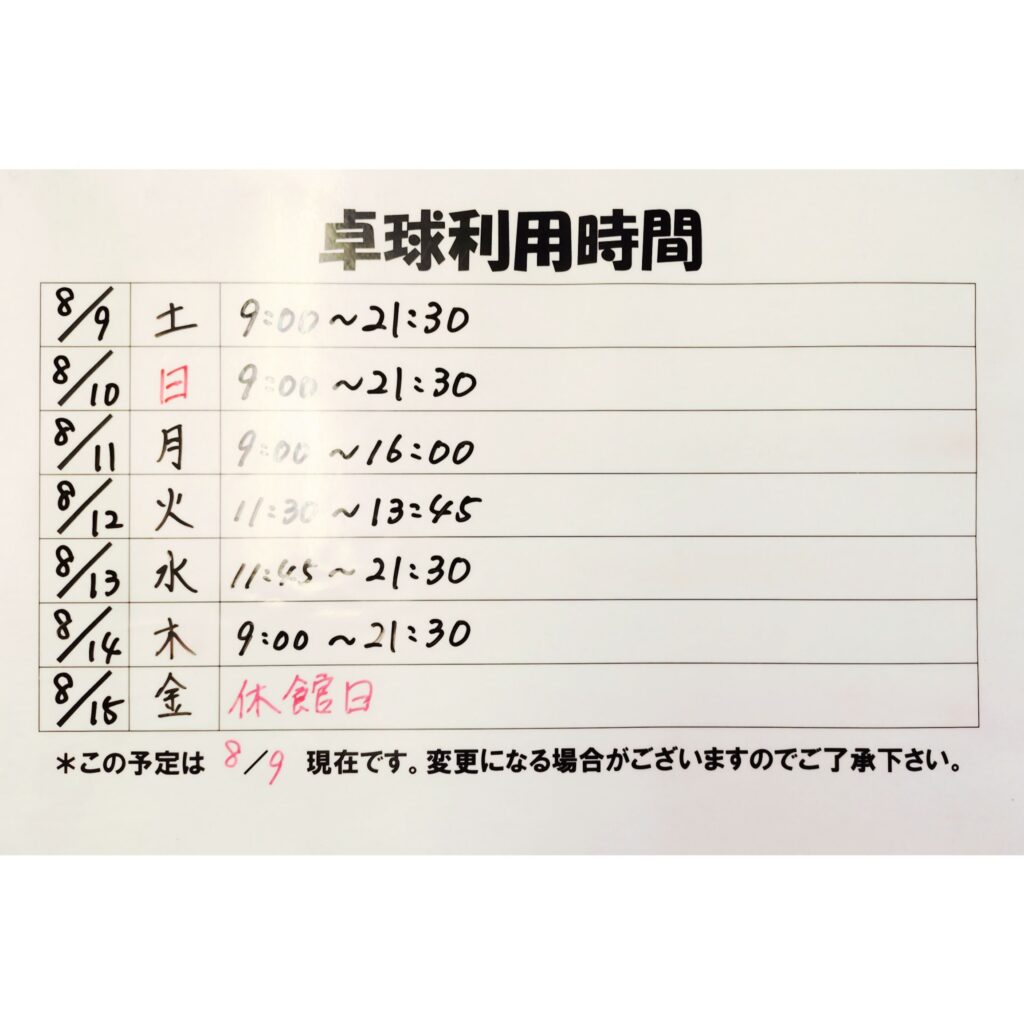 卓球利用時間
8/9 土 9:00~21:30
8/10 日 9:00~21:30
8/11 月 9:00~16:00
8/12 火 11:30~13:45
8/13 水 11:45~21:30
8/14 木 9:00~21:30
8/15 金 休館日
*この予定は 8/9 現在です。変更になる場合がございますのでご了承下さい。